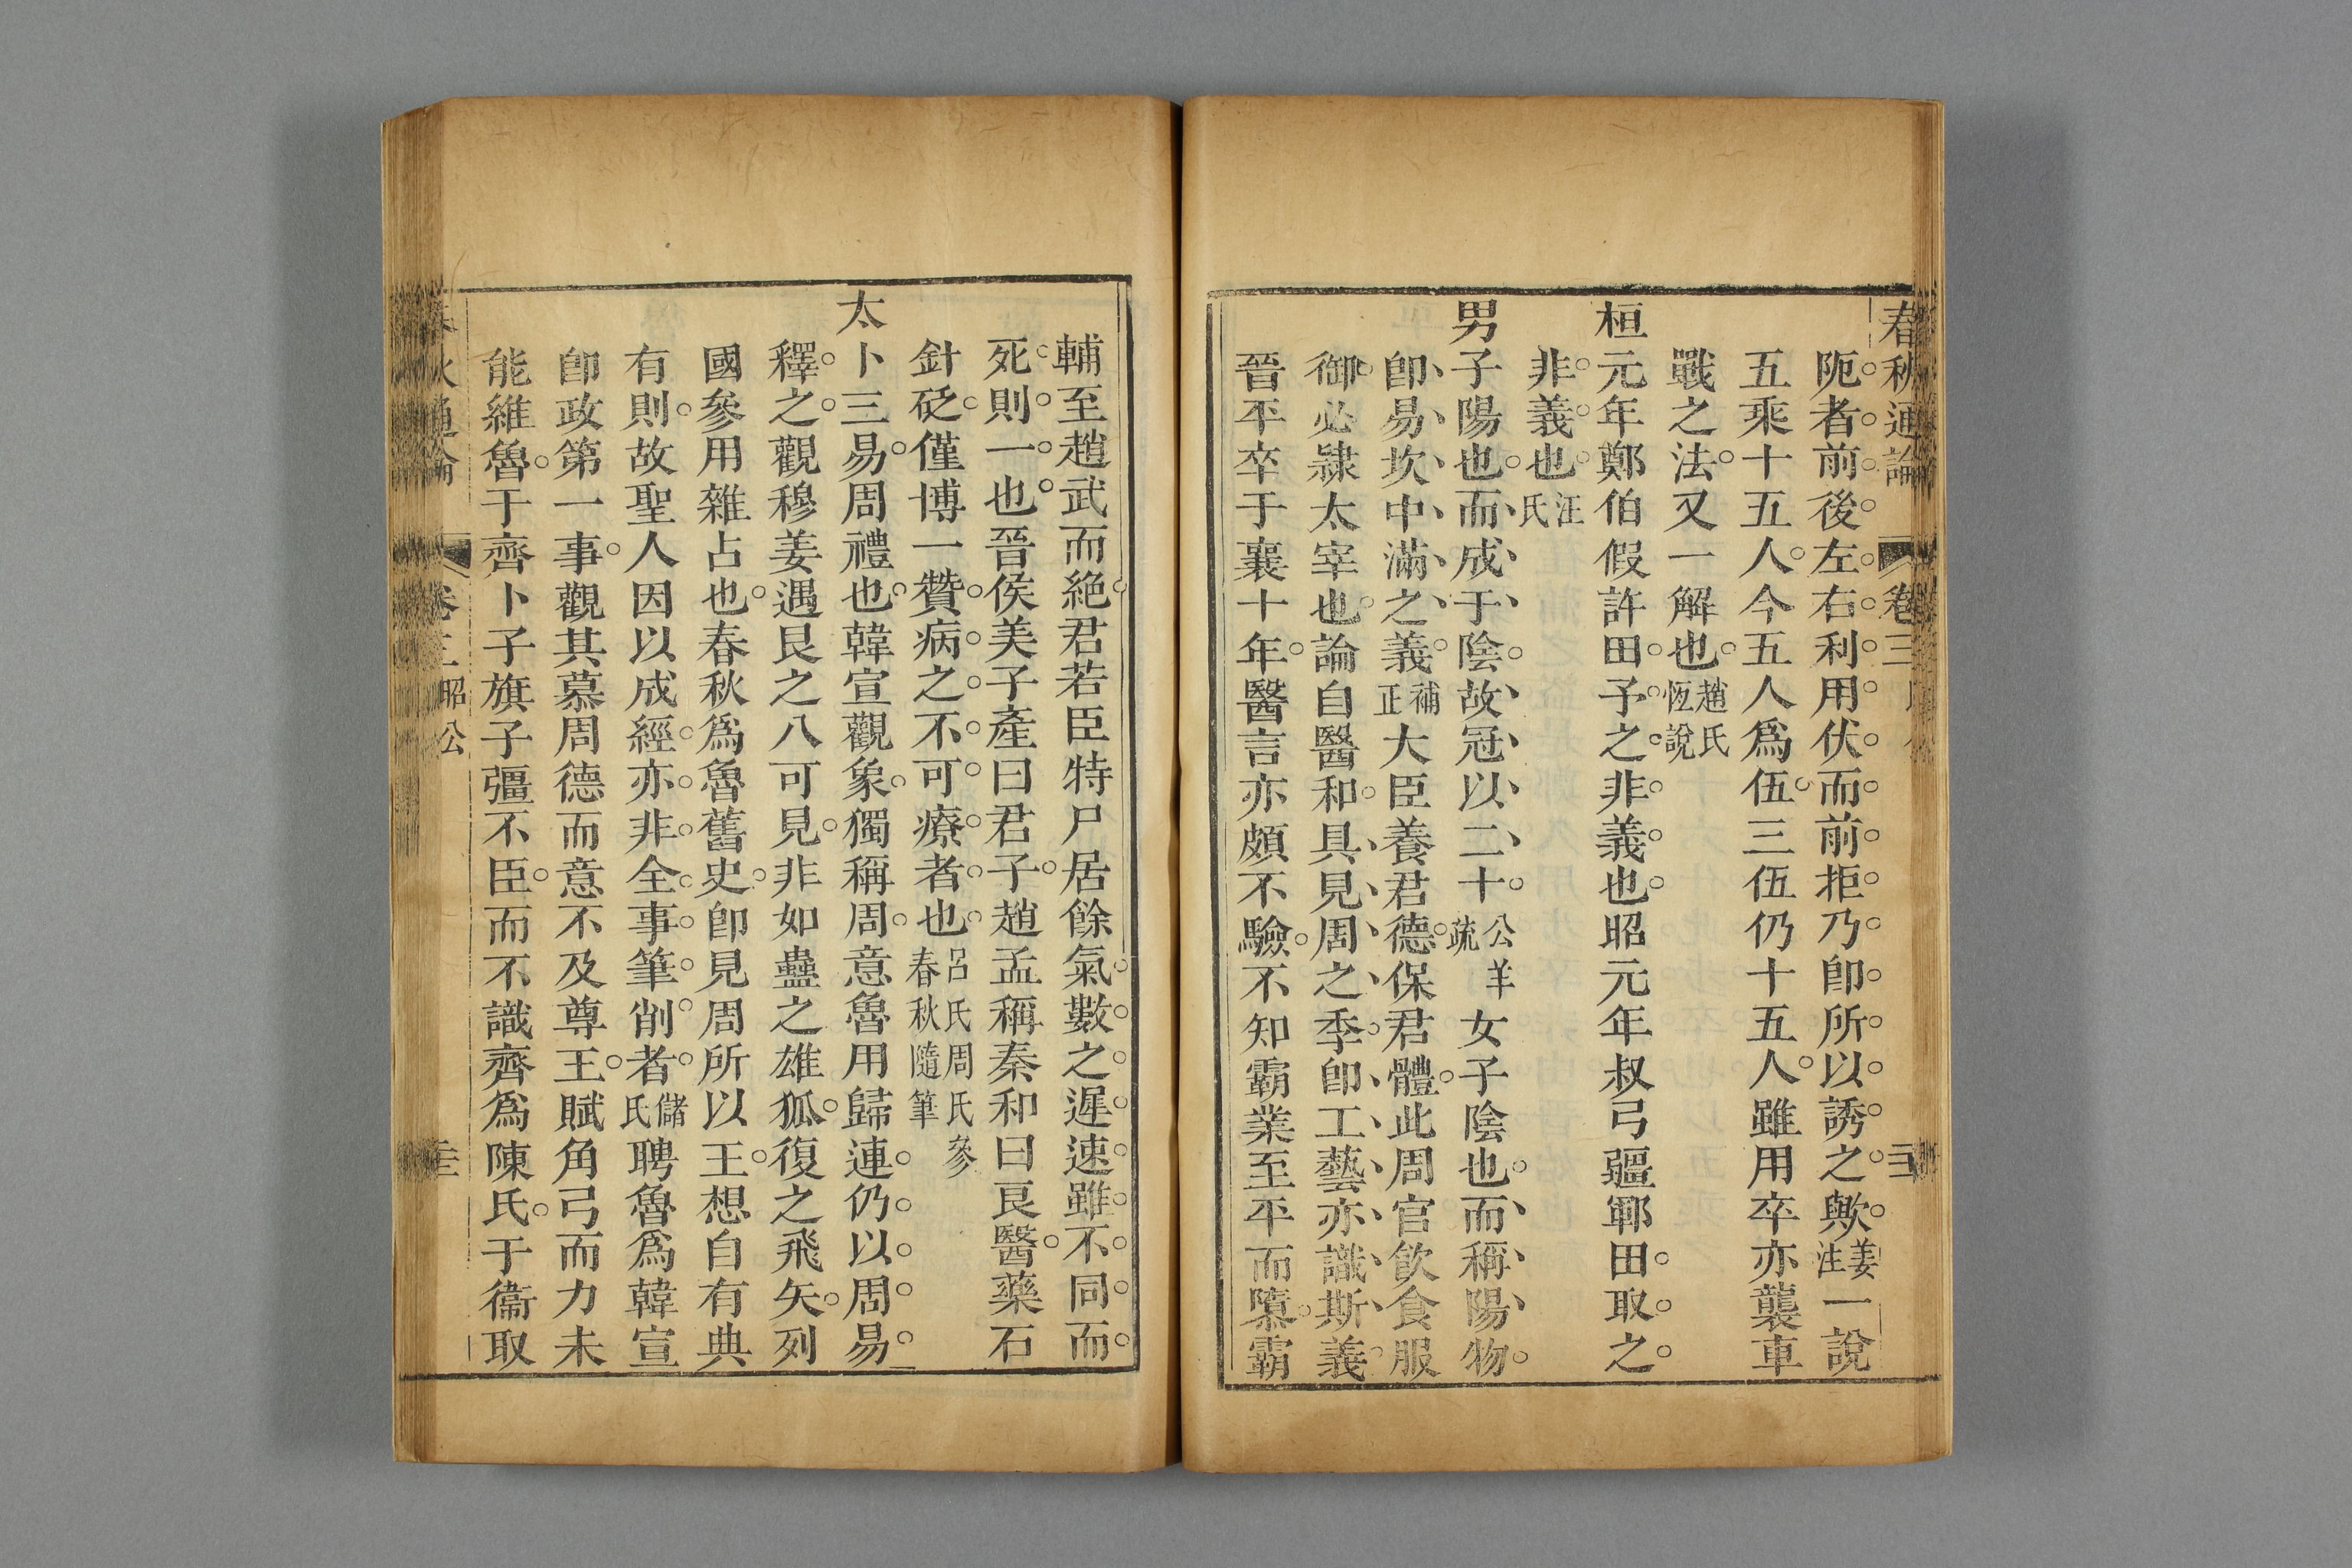 春秋通論 卷三
阨者前後左右利用伏而前拒乃卽所以誘之歟姜注一說
五乘十五人今五人爲伍三伍仍十五人雖用卒亦襲車
戰之法又一解也趙氏恆說
桓元年鄭伯假許田予之非義也昭元年叔弓疆鄆田取之
非義也汪氏
男子陽也而成于陰故冠以二十公羊疏女子陰也而稱陽物
卽易坎中滿之義補正大臣養君德保君體此周官飲食服
御必隷太宰也論自醫和具見周之季卽工藝亦識斯義
晉平卒于襄十年醫言亦頗不驗不知霸業至平而隳霸
輔至趙武而絕君若臣特尸居餘氣數之遲速雖不同而
死則一也晉侯美子產曰君子趙孟稱秦和曰良醫藥石
針砭僅博一贊病之不可療者也呂氏周氏參春秋隨筆
太卜三易周禮也韓宣觀象獨稱周意魯用歸連仍以周易
釋之觀穆姜遇艮之八可見非如蠱之雄狐復之飛矢列
國參用雜占也春秋爲魯舊史卽見周所以王想自有典
有則故聖人因以成經亦非全事筆削者儲氏聘魯爲韓宣
卽政第一事觀其慕周德而意不及尊王賦角弓而力未
能維魯于齊卜子旗子彊不臣而不識齊爲陳氏于衞取
春秋通論 卷三 昭公